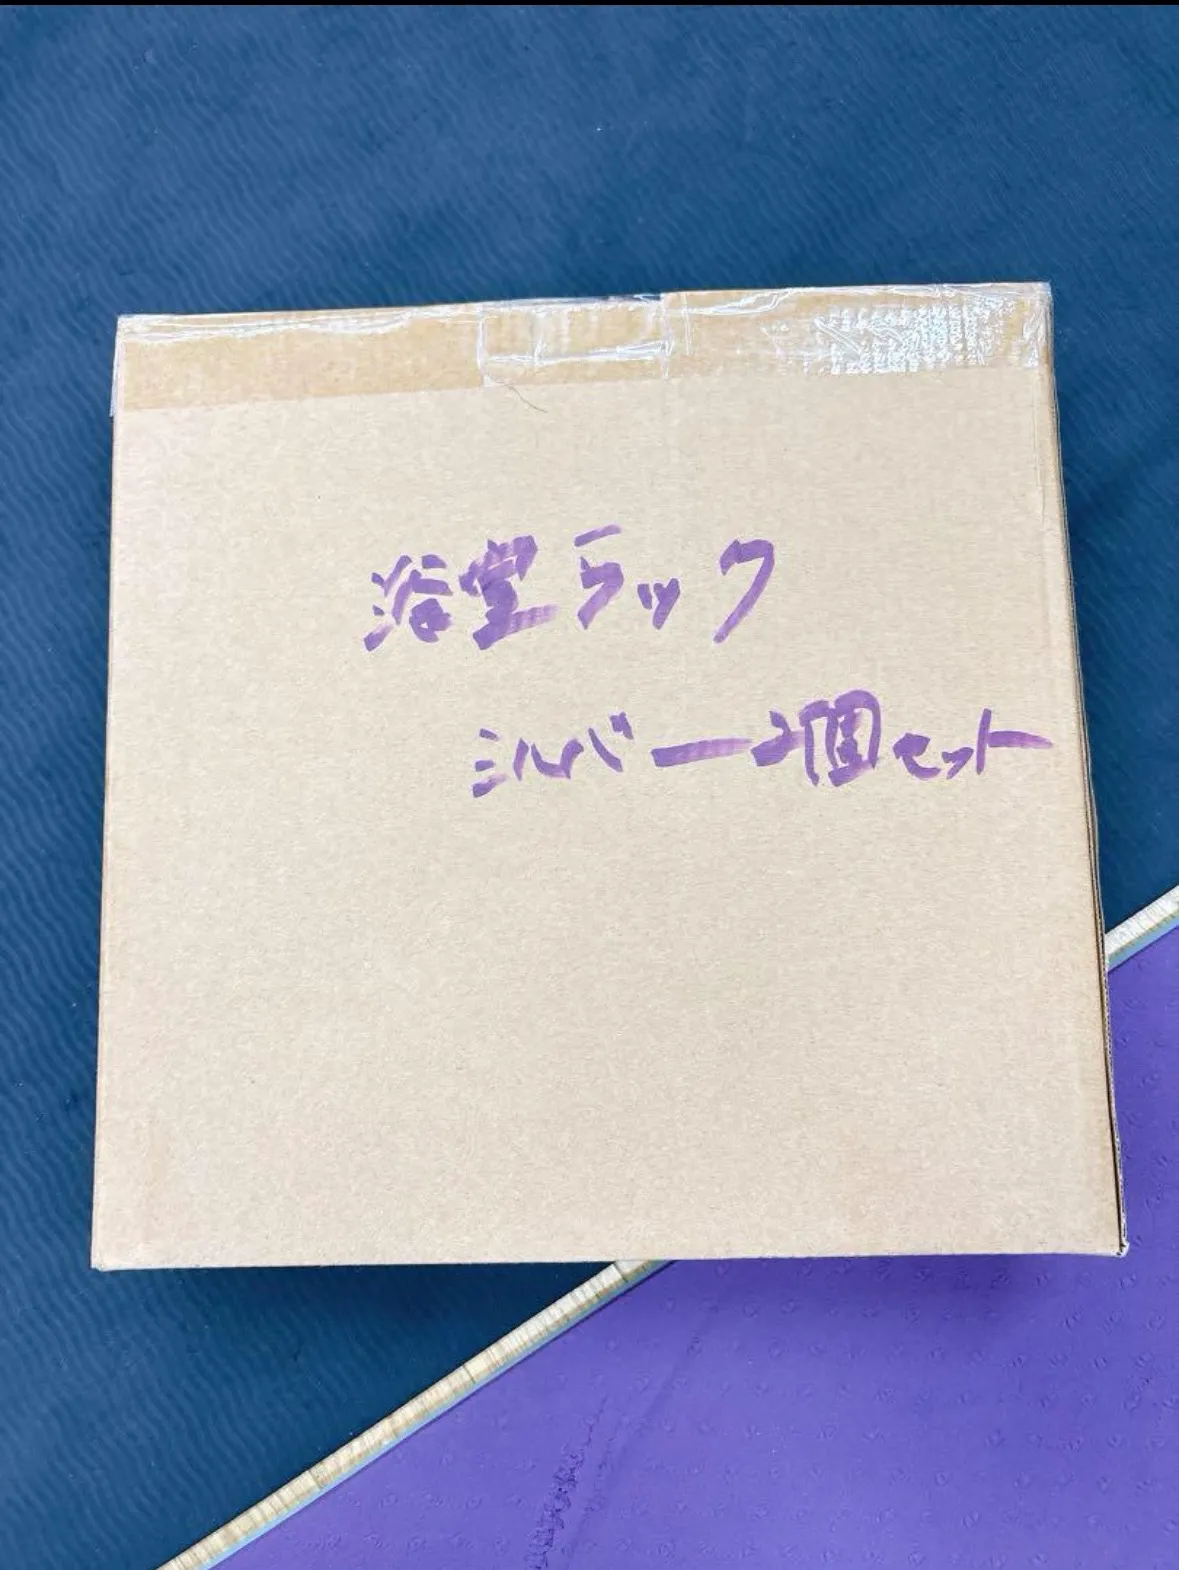 浴室ラック
シルバー2個セット